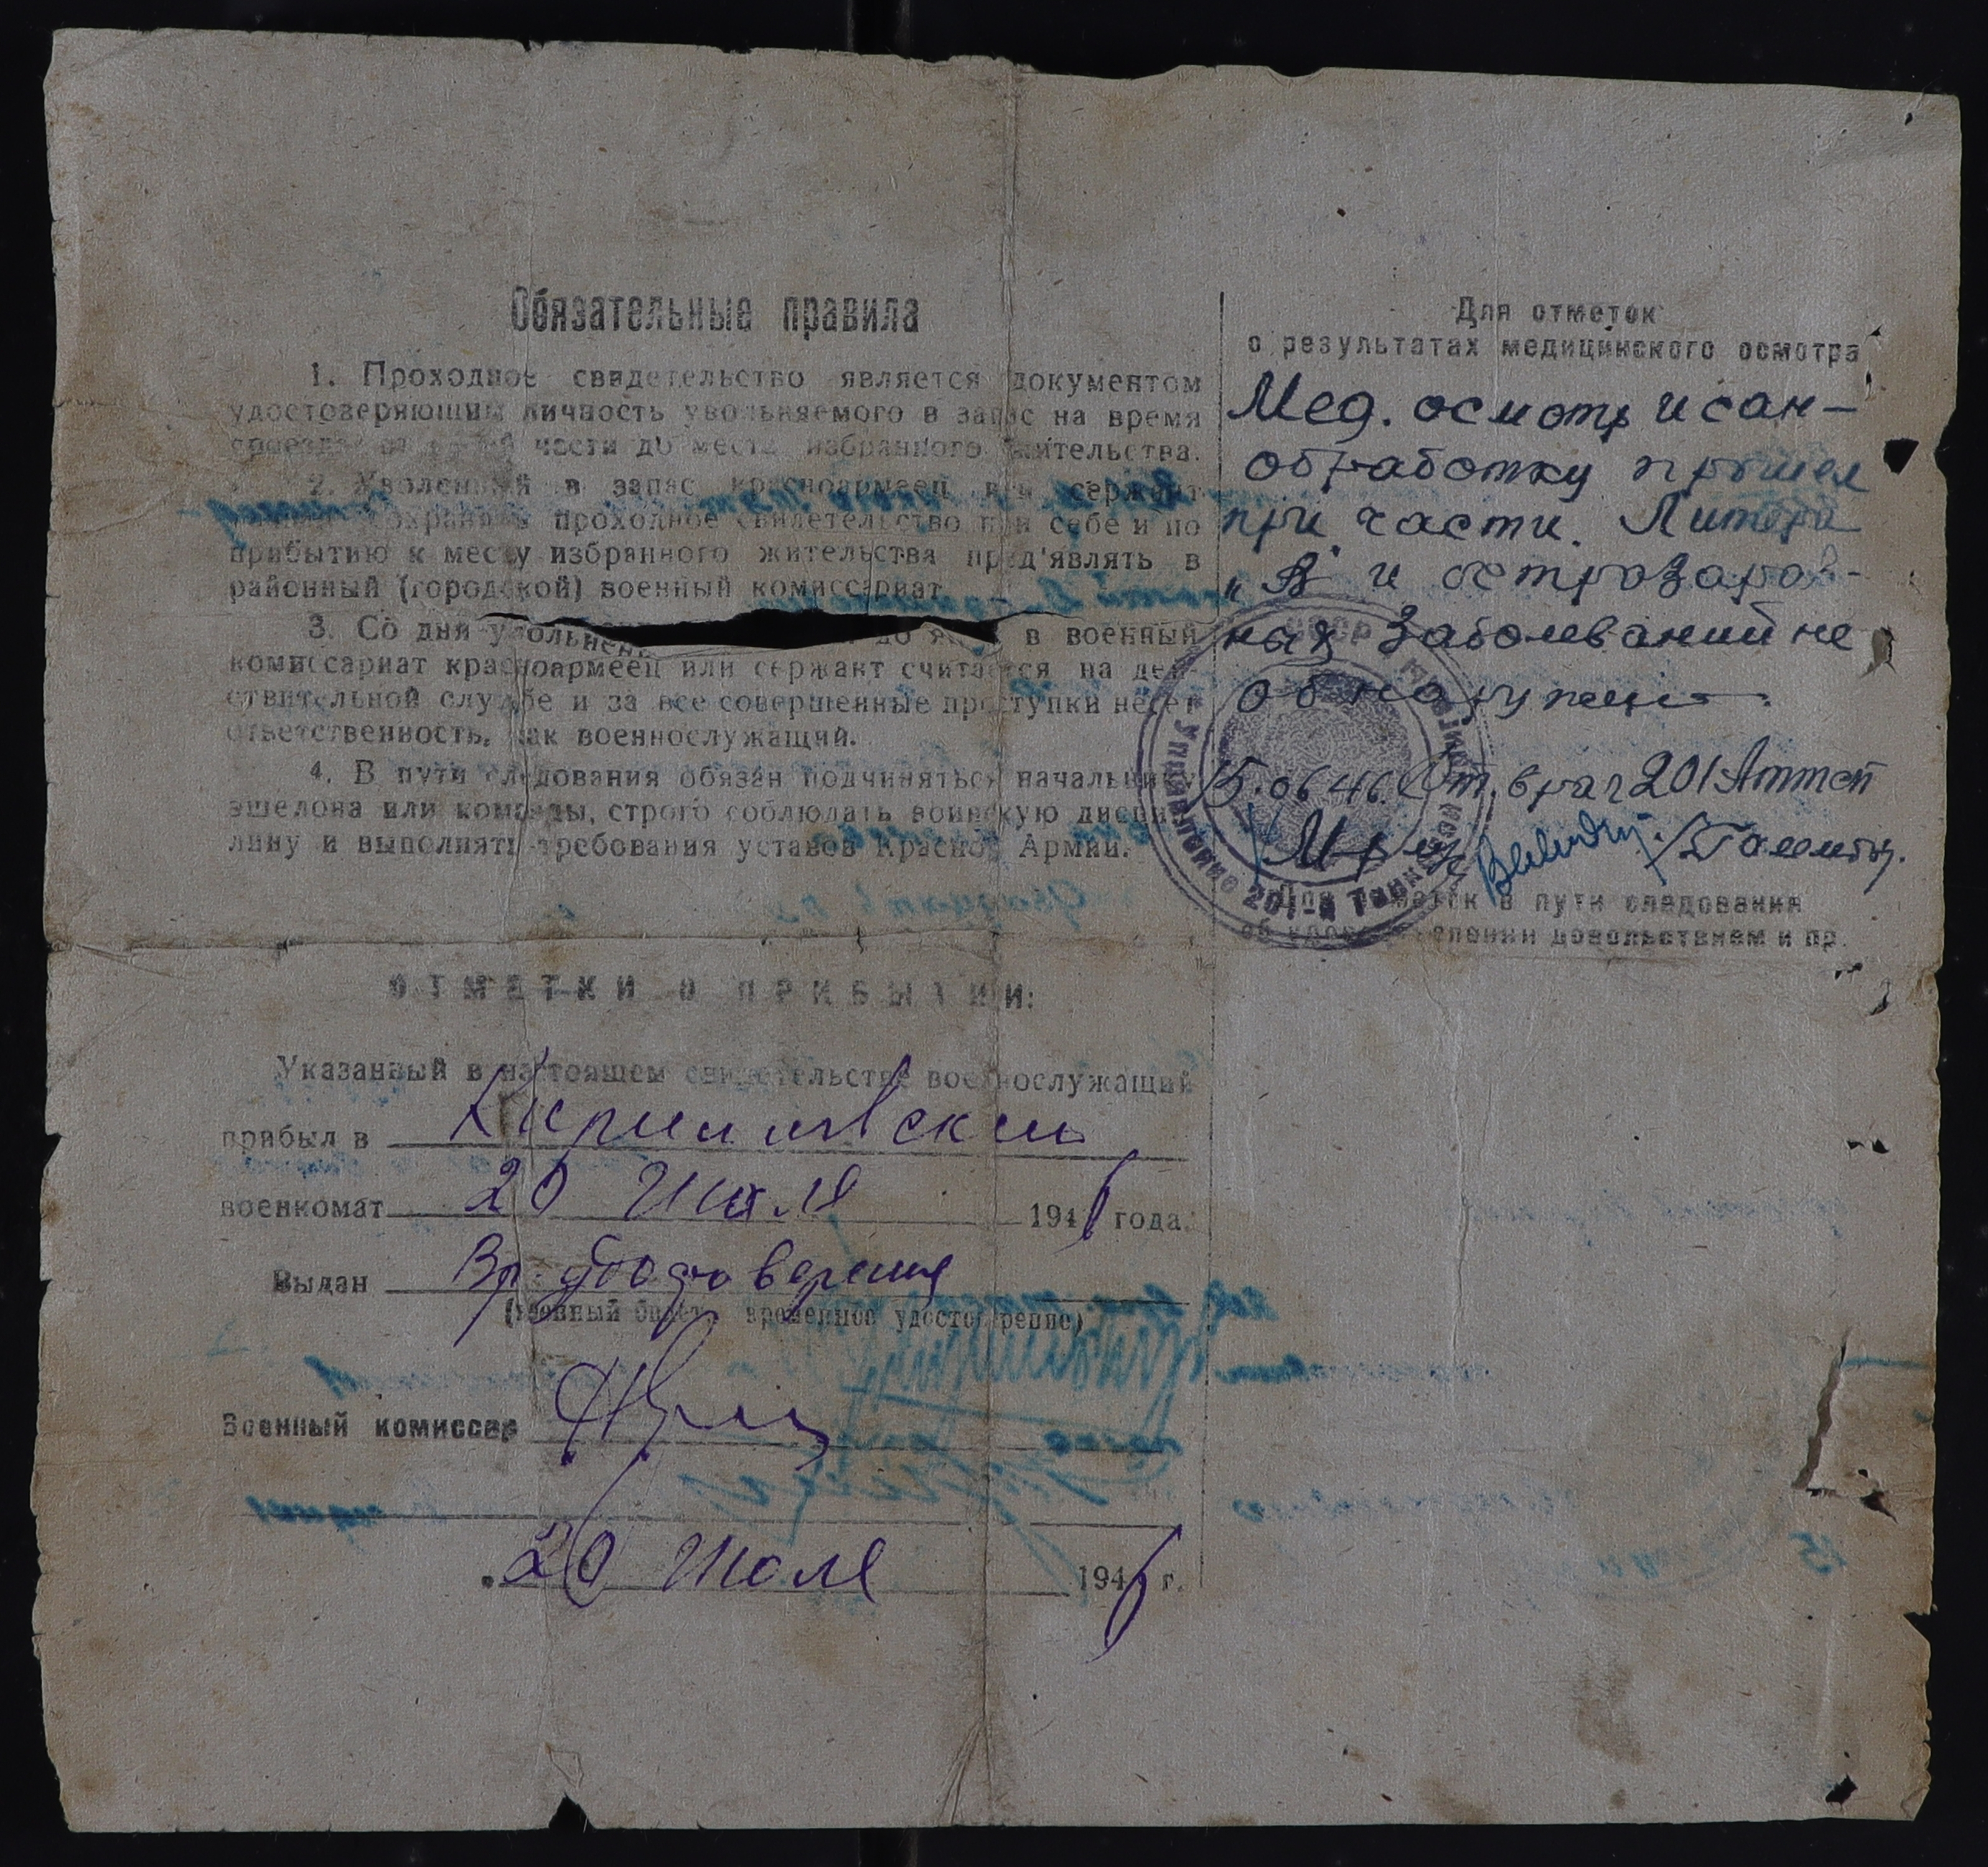 Обязательные правила
1. Проходное свидетельство является документом
удостоверяющим личность увольняемого в запас на время
проезда от части до места избранного жительства.
2. Уволенный в запас красноармеец или сержант
сохранять проходное свидетельство при себе и по
прибытию к месту избранного жительства пред'являть в
районный (городской) военный комиссариат
3. Со дня увольнен до яв в военный
комиссариат красноармеец или сержант считается на дей-
ствительной службе и за все совершенные проступки несет
ответственность, как военнослужащий.
4. В пути следования обязан подчиняться начальнику
эшелона или команды, строго соблюдать воинскую дисцип-
лину и выполнять требования уставов Красной Армии.
ОТМЕТКИ О ПРИБЫТИИ:
Указанный в настоящем свидетельстве военнослужащий
прибыл в Кирилловский
военкомат 20 июля 1946 года.
Выдан Вр. удостоверение
(военный билет, временное удостоверение)
Военный комиссар
20 июля 1946 г.
Для отметок
о результатах медицинского осмотра
Мед. осмотр и сан-
обработку прошел
при части. Литера
„В" и острозараз-
ных заболеваний не
обнаружено.
15.06.46. Ст. врач 201
Для отметок в пути следования
об удовлетворении довольствием и пр.
СССР
Управление 201-й Танк